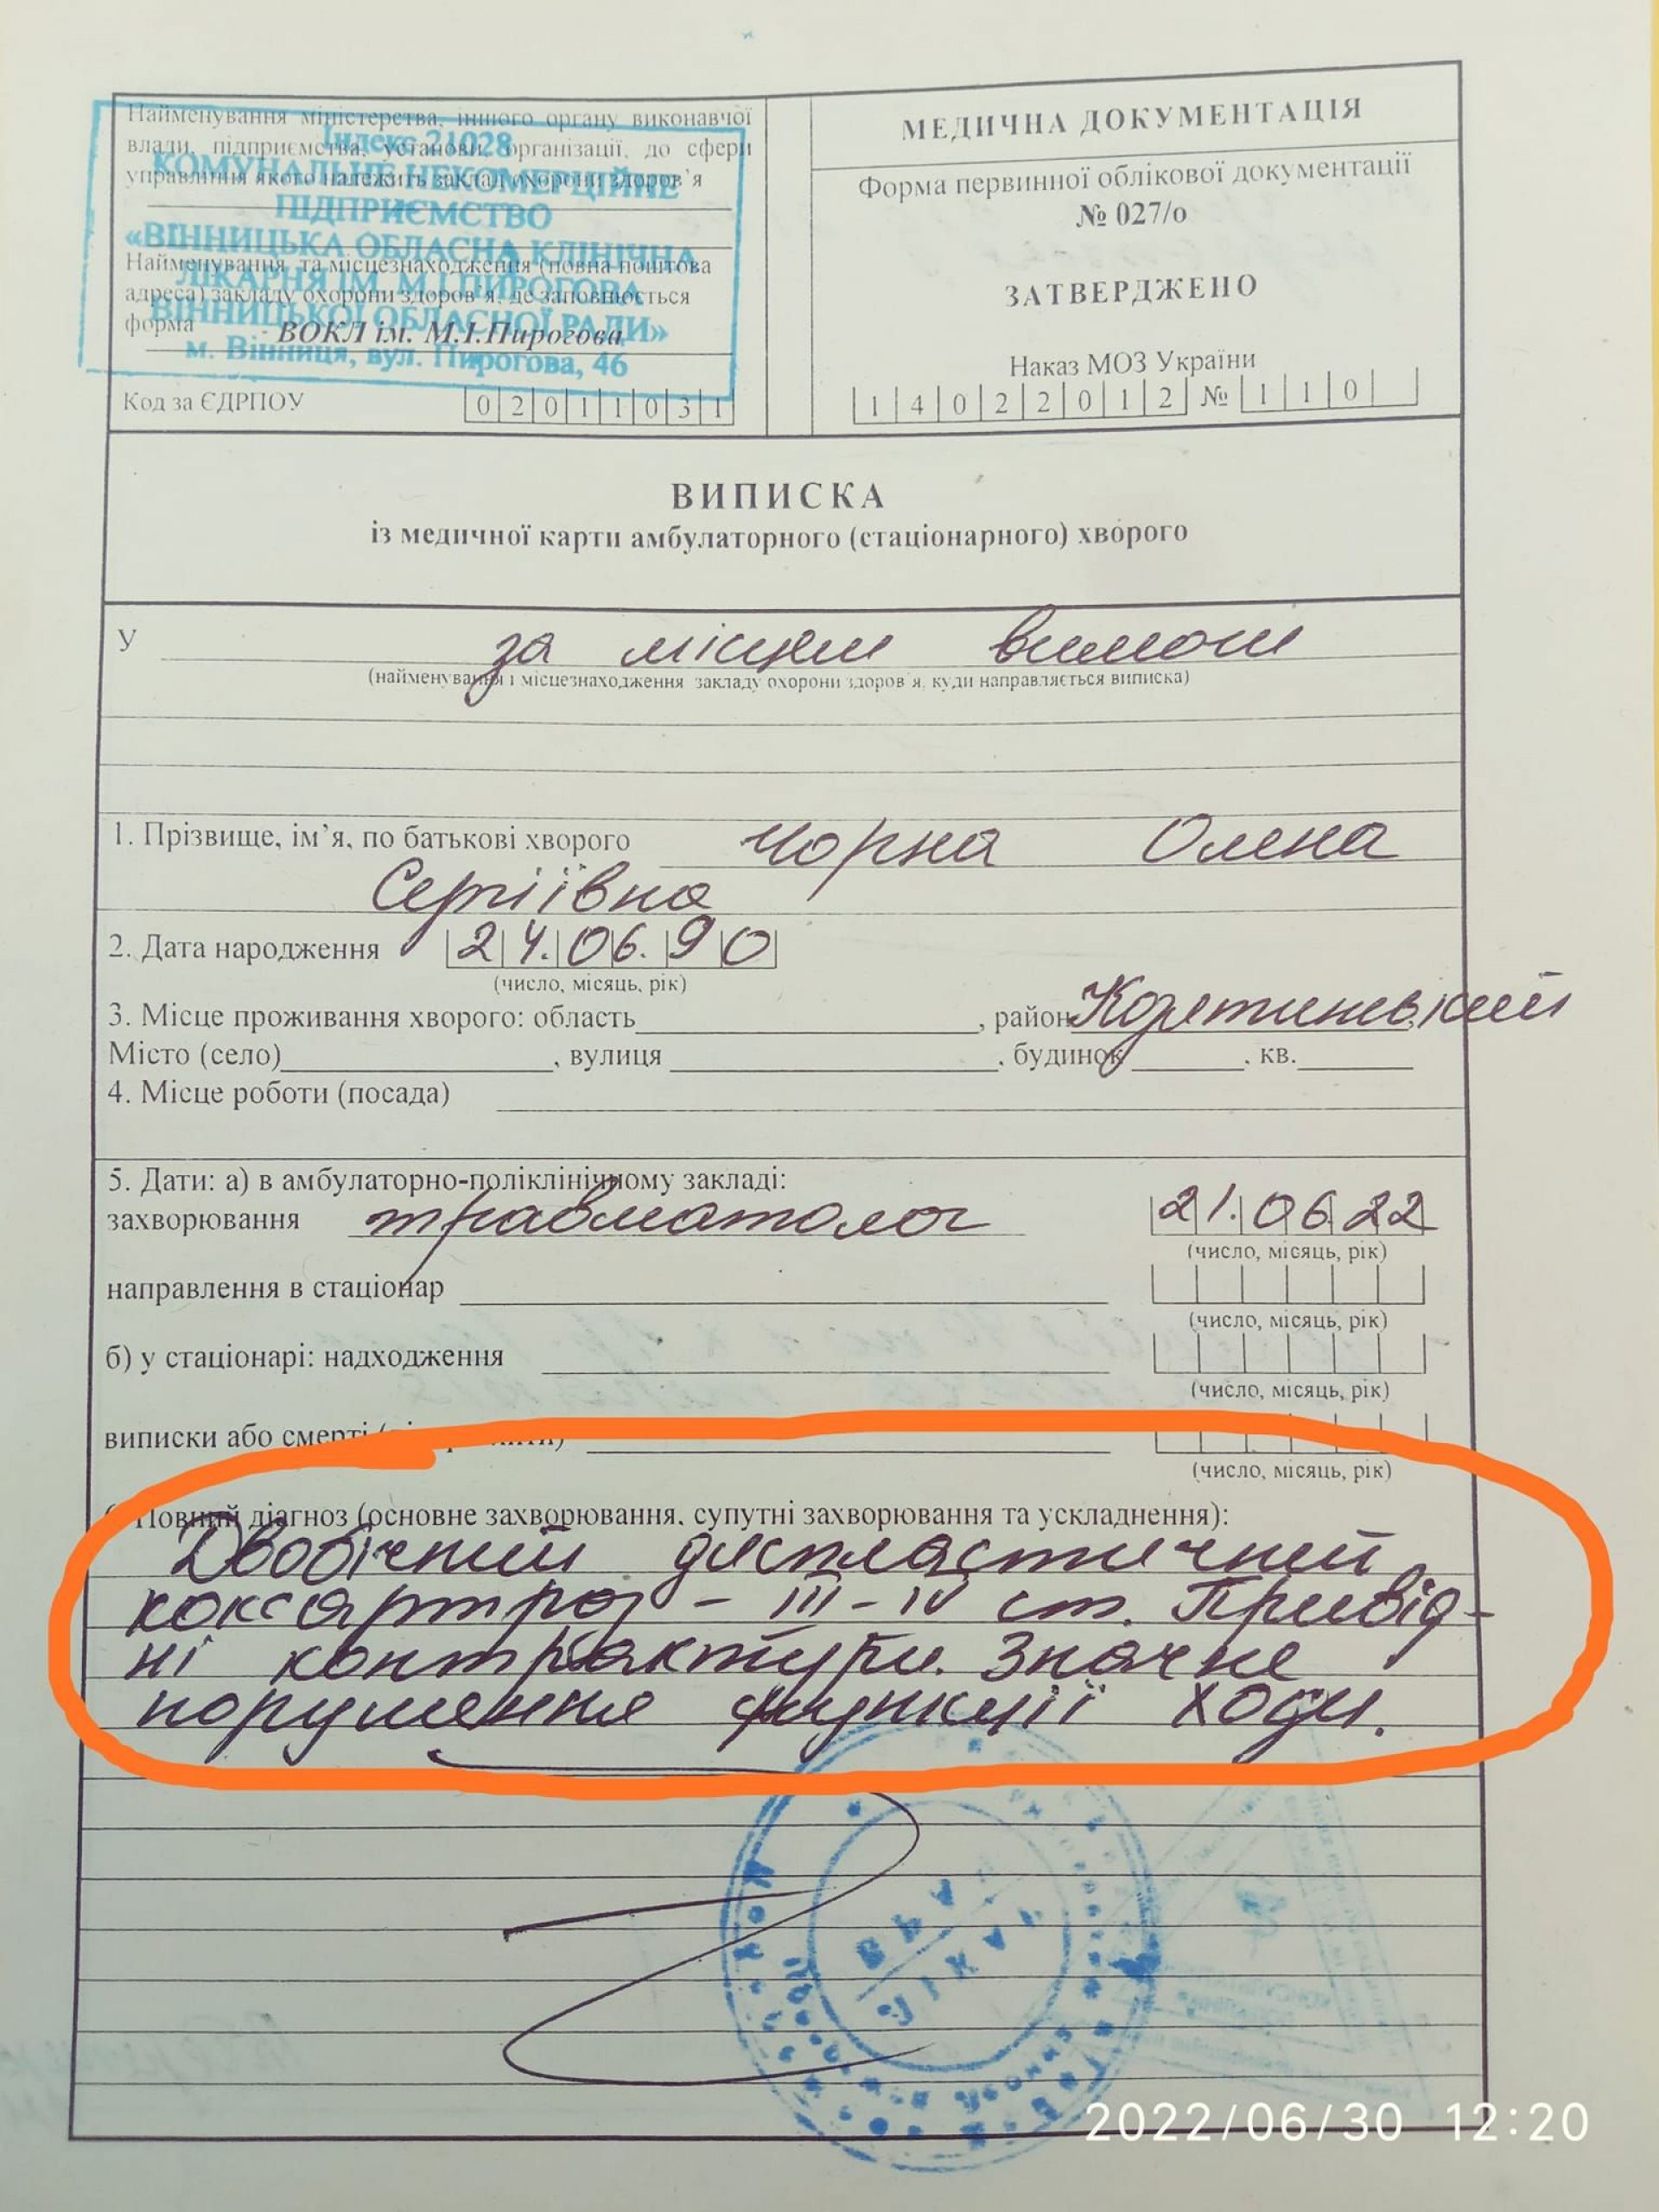 Найменування міністерства, іншого органу виконавчої
влади, підприємства, установи, організації, до сфери
управління якого належить заклад охорони здоров'я
Найменування та місцезнаходження (повна поштова
адреса) закладу охорони здоров'я, де заповнюється
форма ВОКЛ ім. М.І.Пирогова
Код за ЄДРПОУ 02011031
Індекс 21028
КОМУНАЛЬНЕ НЕКОМЕРЦІЙНЕ
ПІДПРИЄМСТВО
«ВІННИЦЬКА ОБЛАСНА КЛІНІЧНА
ЛІКАРНЯ ІМ. М.І. ПИРОГОВА
ВІННИЦЬКОЇ ОБЛАСНОЇ РАДИ»
м. Вінниця, вул. Пирогова, 46
МЕДИЧНА ДОКУМЕНТАЦІЯ
Форма первинної облікової документації
№ 027/о
ЗАТВЕРДЖЕНО
Наказ МОЗ України
14022012 № 110
ВИПИСКА
із медичної карти амбулаторного (стаціонарного) хворого
У за місцем вимоги
(найменування і місцезнаходження закладу охорони здоров'я, куди направляється виписка)
1. Прізвище, ім'я, по батькові хворого Чорна Олена
Сергіївна
2. Дата народження 24.06.90
(число, місяць, рік)
3. Місце проживання хворого: область , район
Місто (село) , вулиця , будинок , кв.
4. Місце роботи (посада)
5. Дати: а) в амбулаторно-поліклінічному закладі:
захворювання травматолог 21.06.22
(число, місяць, рік)
направлення в стаціонар
(число, місяць, рік)
б) у стаціонарі: надходження
(число, місяць, рік)
виписки або смерті
(число, місяць, рік)
Повний діагноз (основне захворювання, супутні захворювання та ускладнення):
Двобічний диспластичний
коксартроз - III-IV ст. Привід-
ні контрактури. Значне
порушення функції ходи.
2022/06/30 12:20